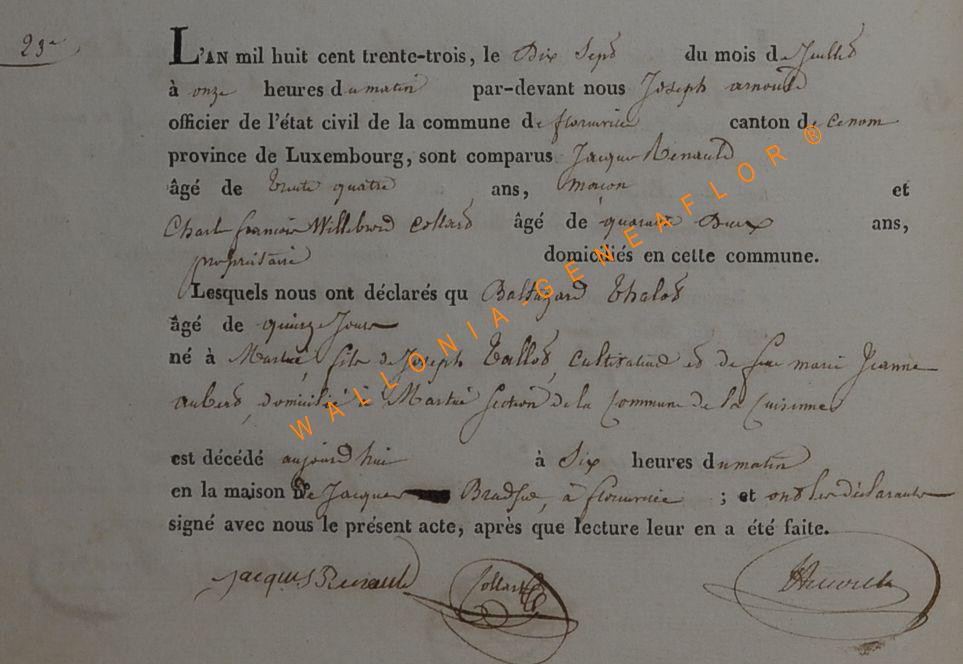 23e
L'AN mil huit cent trente-trois, le Dix Sept du mois de Juillet
à onze heures du matin par-devant nous Joseph arnould
officier de l'état civil de la commune de florenville canton de
province de Luxembourg, sont comparus Jacques Renauld
âgé de trente quatre ans, maçon et
Charl francois Willebrord Collard âgé de quarante Deux ans,
propriétaire domiciliés en cette commune.
Lesquels nous ont déclarés qu Baltazard thalot
âgé de quinze Jours
né à Martué, fils de Joseph tallot, cultivateur et de feue marie Jeanne
aubert, domicilié à Martué Section de la Commune de la Cuisinne
est décédé aujourd'hui à Six heures du matin
en la maison De Jacques à florenville ; et ont les déclarants
signé avec nous le présent acte, après que lecture leur en a été faite.
Jacques Renauld Collard
WALLONIA-GENEAFLOR ®